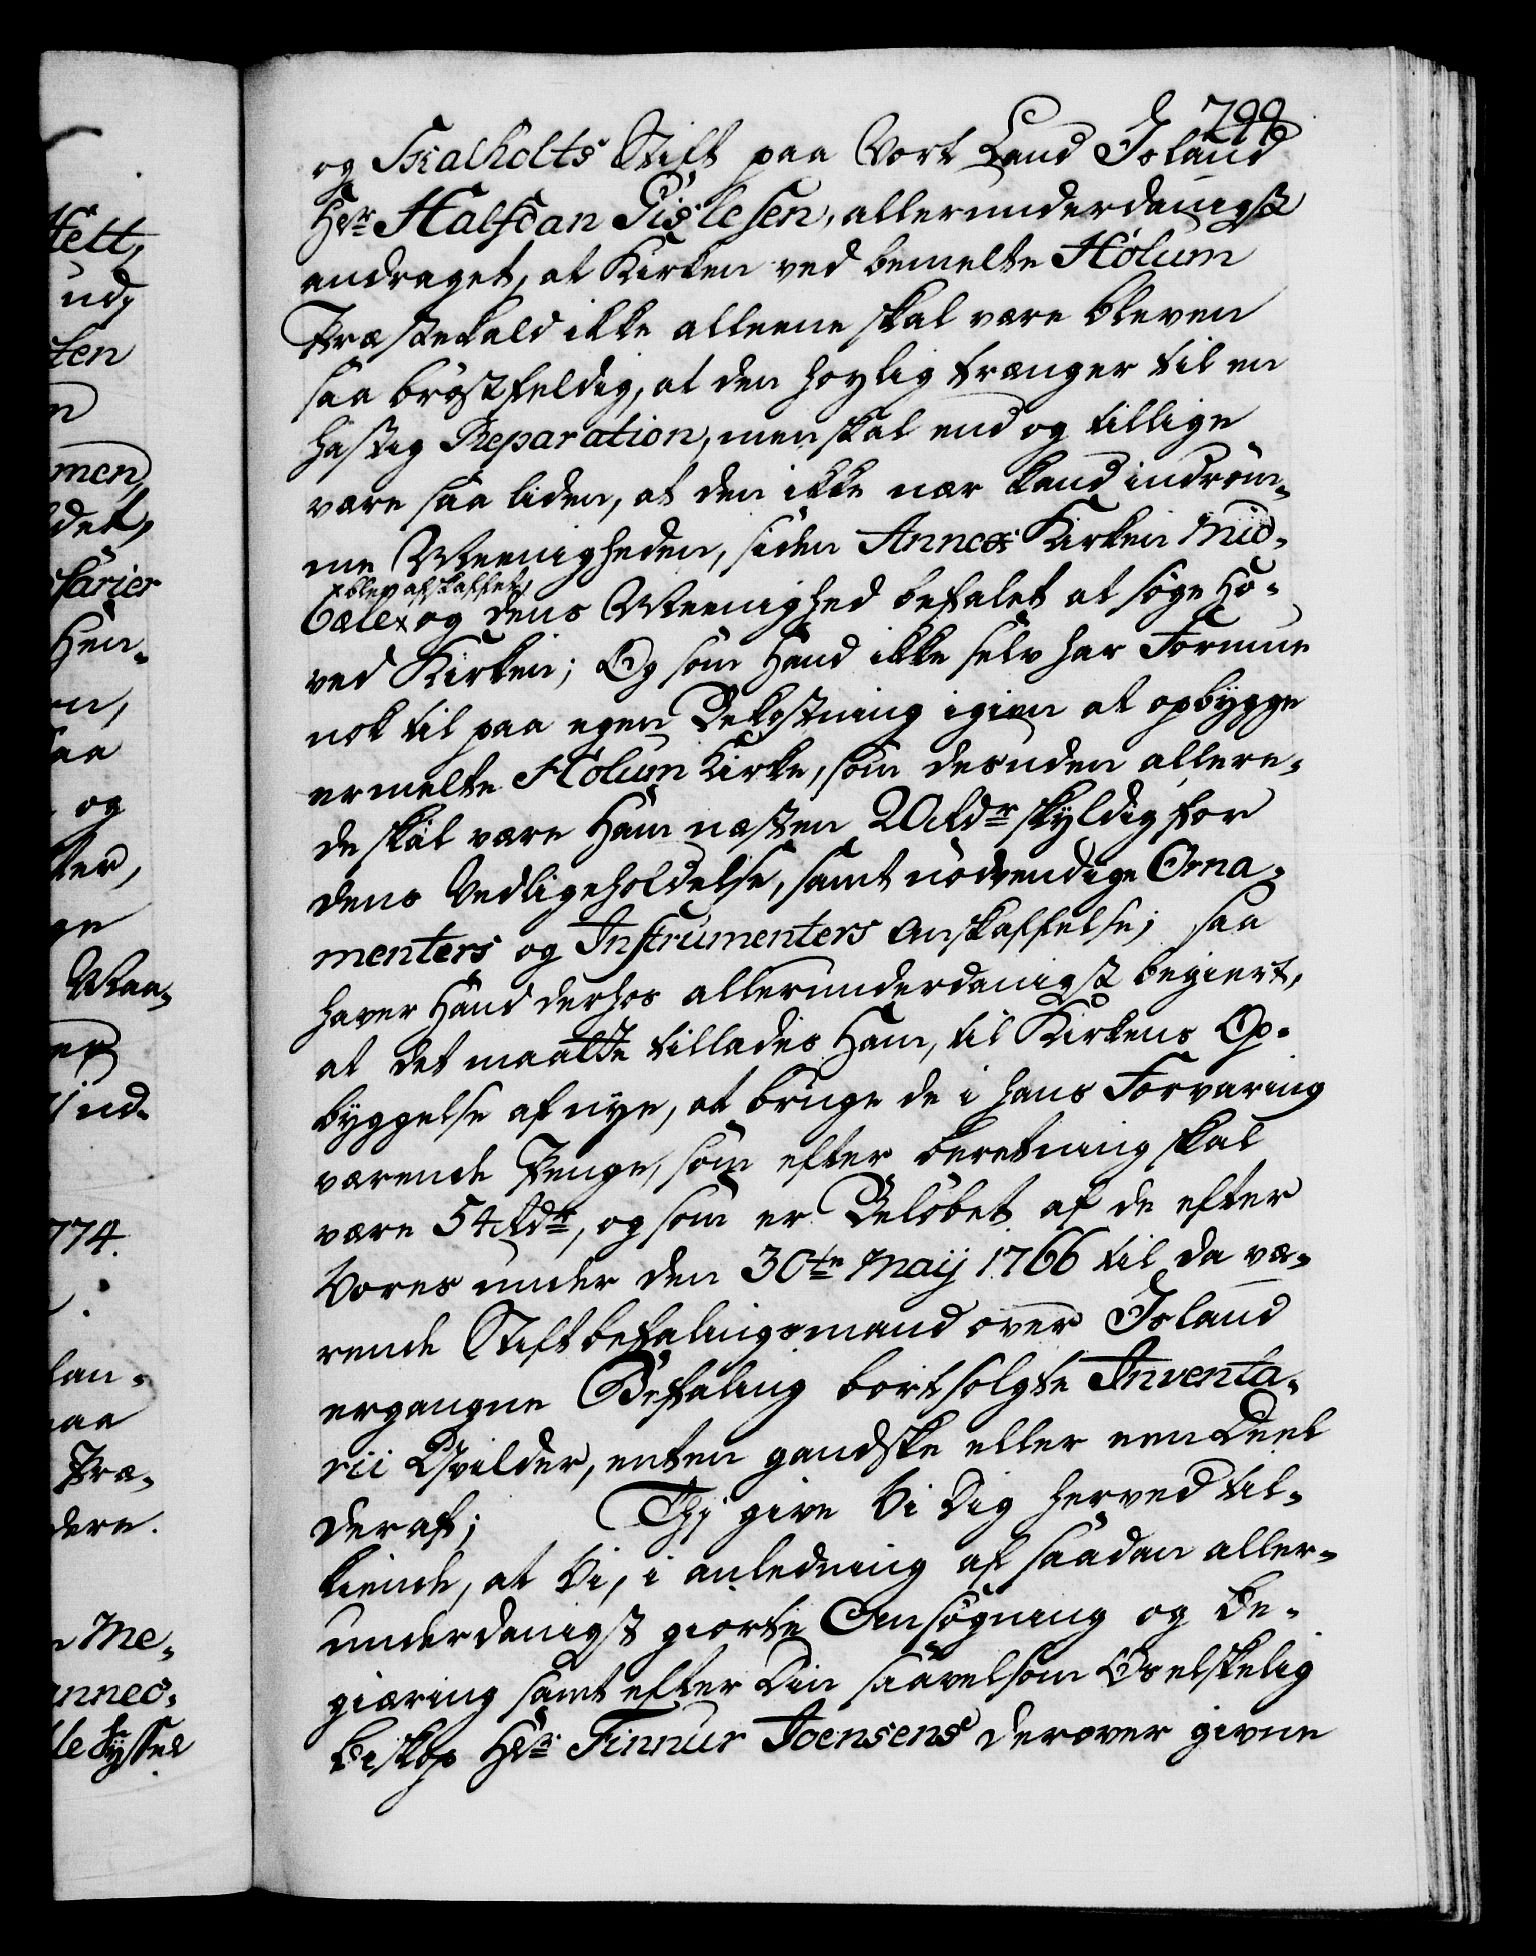 799
og Skalholts Stift paa Vort Land Island
Hr. Halfdan Gislesen, allerunderdanigst
andraget, at Kirken ved bemelte Hólum
Præstekald ikke alleene skal være bleven
saa bröstfeldig, at den höylig trænger til en
hastig Reparation, men skal end og tillige
være saa liden, at den ikke nær kand indröm-
me Meenigheden, siden Annex Kirken Mid-
x blev afskaffet,
bælex og dens Meenighed befalet at söge Ho-
ved Kirken; Og som Hand ikke selv har Formue
nok til paa egen Bekostning igien at opbygge
ermelte Hólum Kirke, som desuden allere-
de skal være Ham næsten 20 Rdr skyldig for
dens Vedligeholdelse, samt nödvendige Orna-
menters og Instrumenters Anskaffelse; saa
haver Hand derhos allerunderdanigst begiert,
at det maatte tillades Ham, til Kirkens Op-
byggelse af nye, at bruge de i hans Forvaring
værende Penge, som efter beretning skal
være 54 Rdr, og som er Belöbet af de efter
Vores under den 30te Maij 1766 til da væ-
rende Stiftbefalingsmand over Island
ergangne Befaling bortsolgte Inventa-
rii Qvilder, enten gandske eller een Deel
deraf; Thi give Vi Dig herved til-
kiende, at Vi, i anledning af saadan aller-
underdanigst giorte Ansögning og Be-
giæring samt efter Din saavelsom Os elskelig
Biskop Hr. Finnur Joensens derover givne